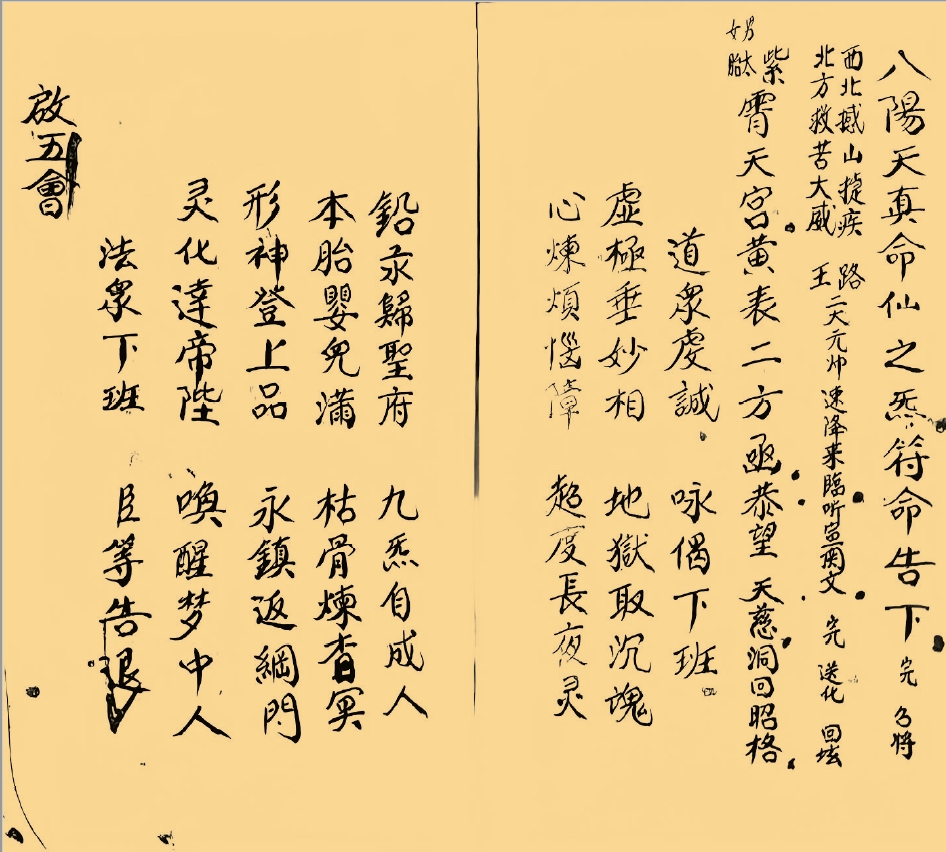 八陽天真命仙之炁符命告下 完 召將
西北撼山㨗疾 路
北方救苦大威 王
二天元帅速降來臨听宣関文 完 送化 回坛
紫霄天宮黄表二方函恭望 天慈洞回昭格
道眾虔誠 咏偈下班
虛極垂妙相 地獄取沉魂
心煉煩惱障 超度長夜灵
鉛汞歸聖府 九炁自成人
本胎嬰兒滿 枯骨煉杳冥
形神登上品 永鎮返綱門
灵化達帝陛 喚醒梦中人
法眾下班 臣等告退
啟五會